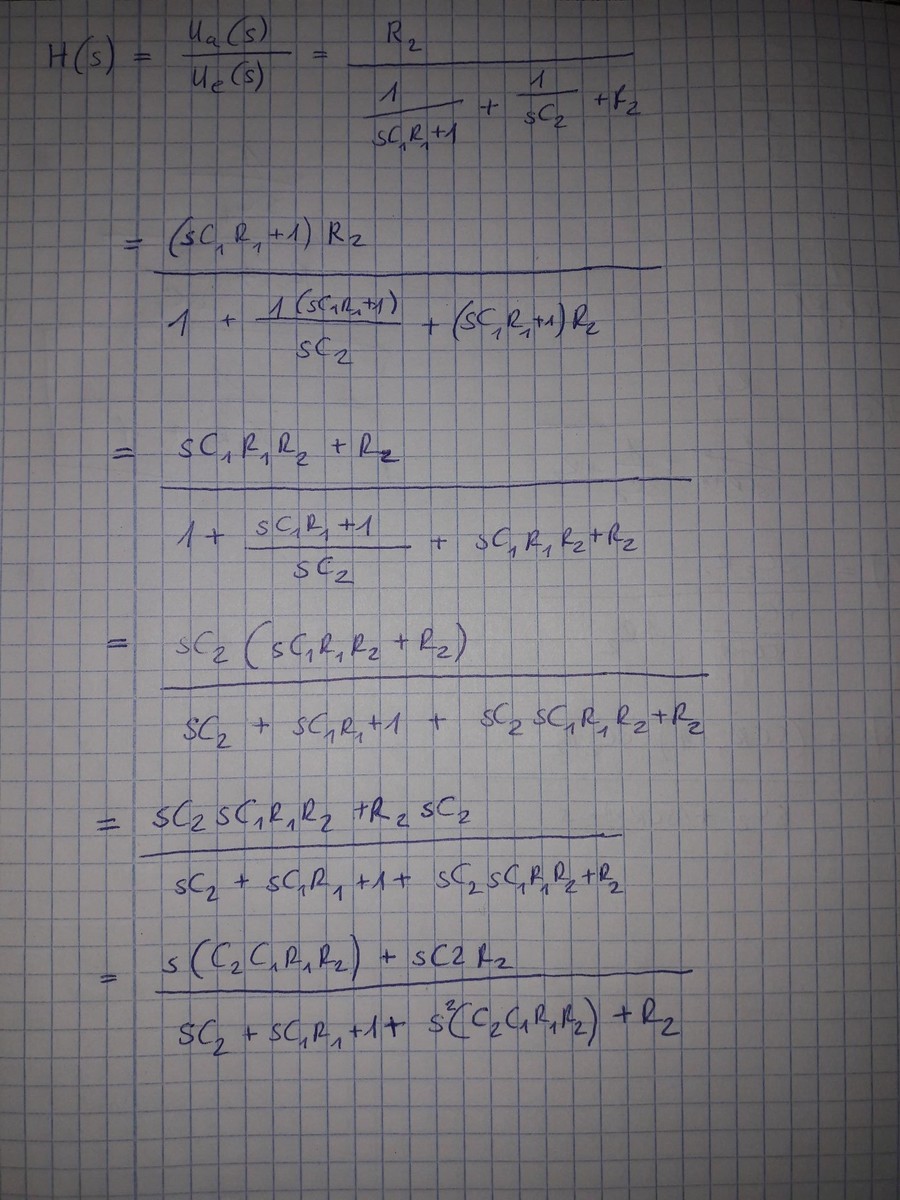 H(s) = Ua(s) / Ue(s) = R₂ / (1/(sC₁R₁+1) + 1/(sC₂) + R₂)
= (sC₁R₁+1) R₂ / (1 + 1(sC₁R₁+1)/(sC₂) + (sC₁R₁+1)R₂)
= sC₁R₁R₂ + R₂ / (1 + (sC₁R₁+1)/(sC₂) + sC₁R₁R₂+R₂)
= sC₂(sC₁R₁R₂ + R₂) / (sC₂ + sC₁R₁+1 + sC₂sC₁R₁R₂+R₂)
= sC₂sC₁R₁R₂ + R₂sC₂ / (sC₂ + sC₁R₁+1 + sC₂sC₁R₁R₂+R₂)
= s(C₂C₁R₁R₂) + sC2R₂ / (sC₂ + sC₁R₁+1 + s²(C₂C₁R₁R₂) + R₂)